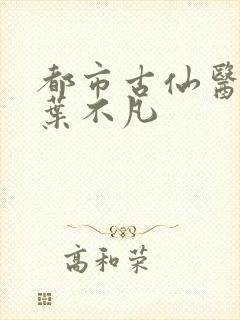 都市古仙醫
葉不凡
高和荣